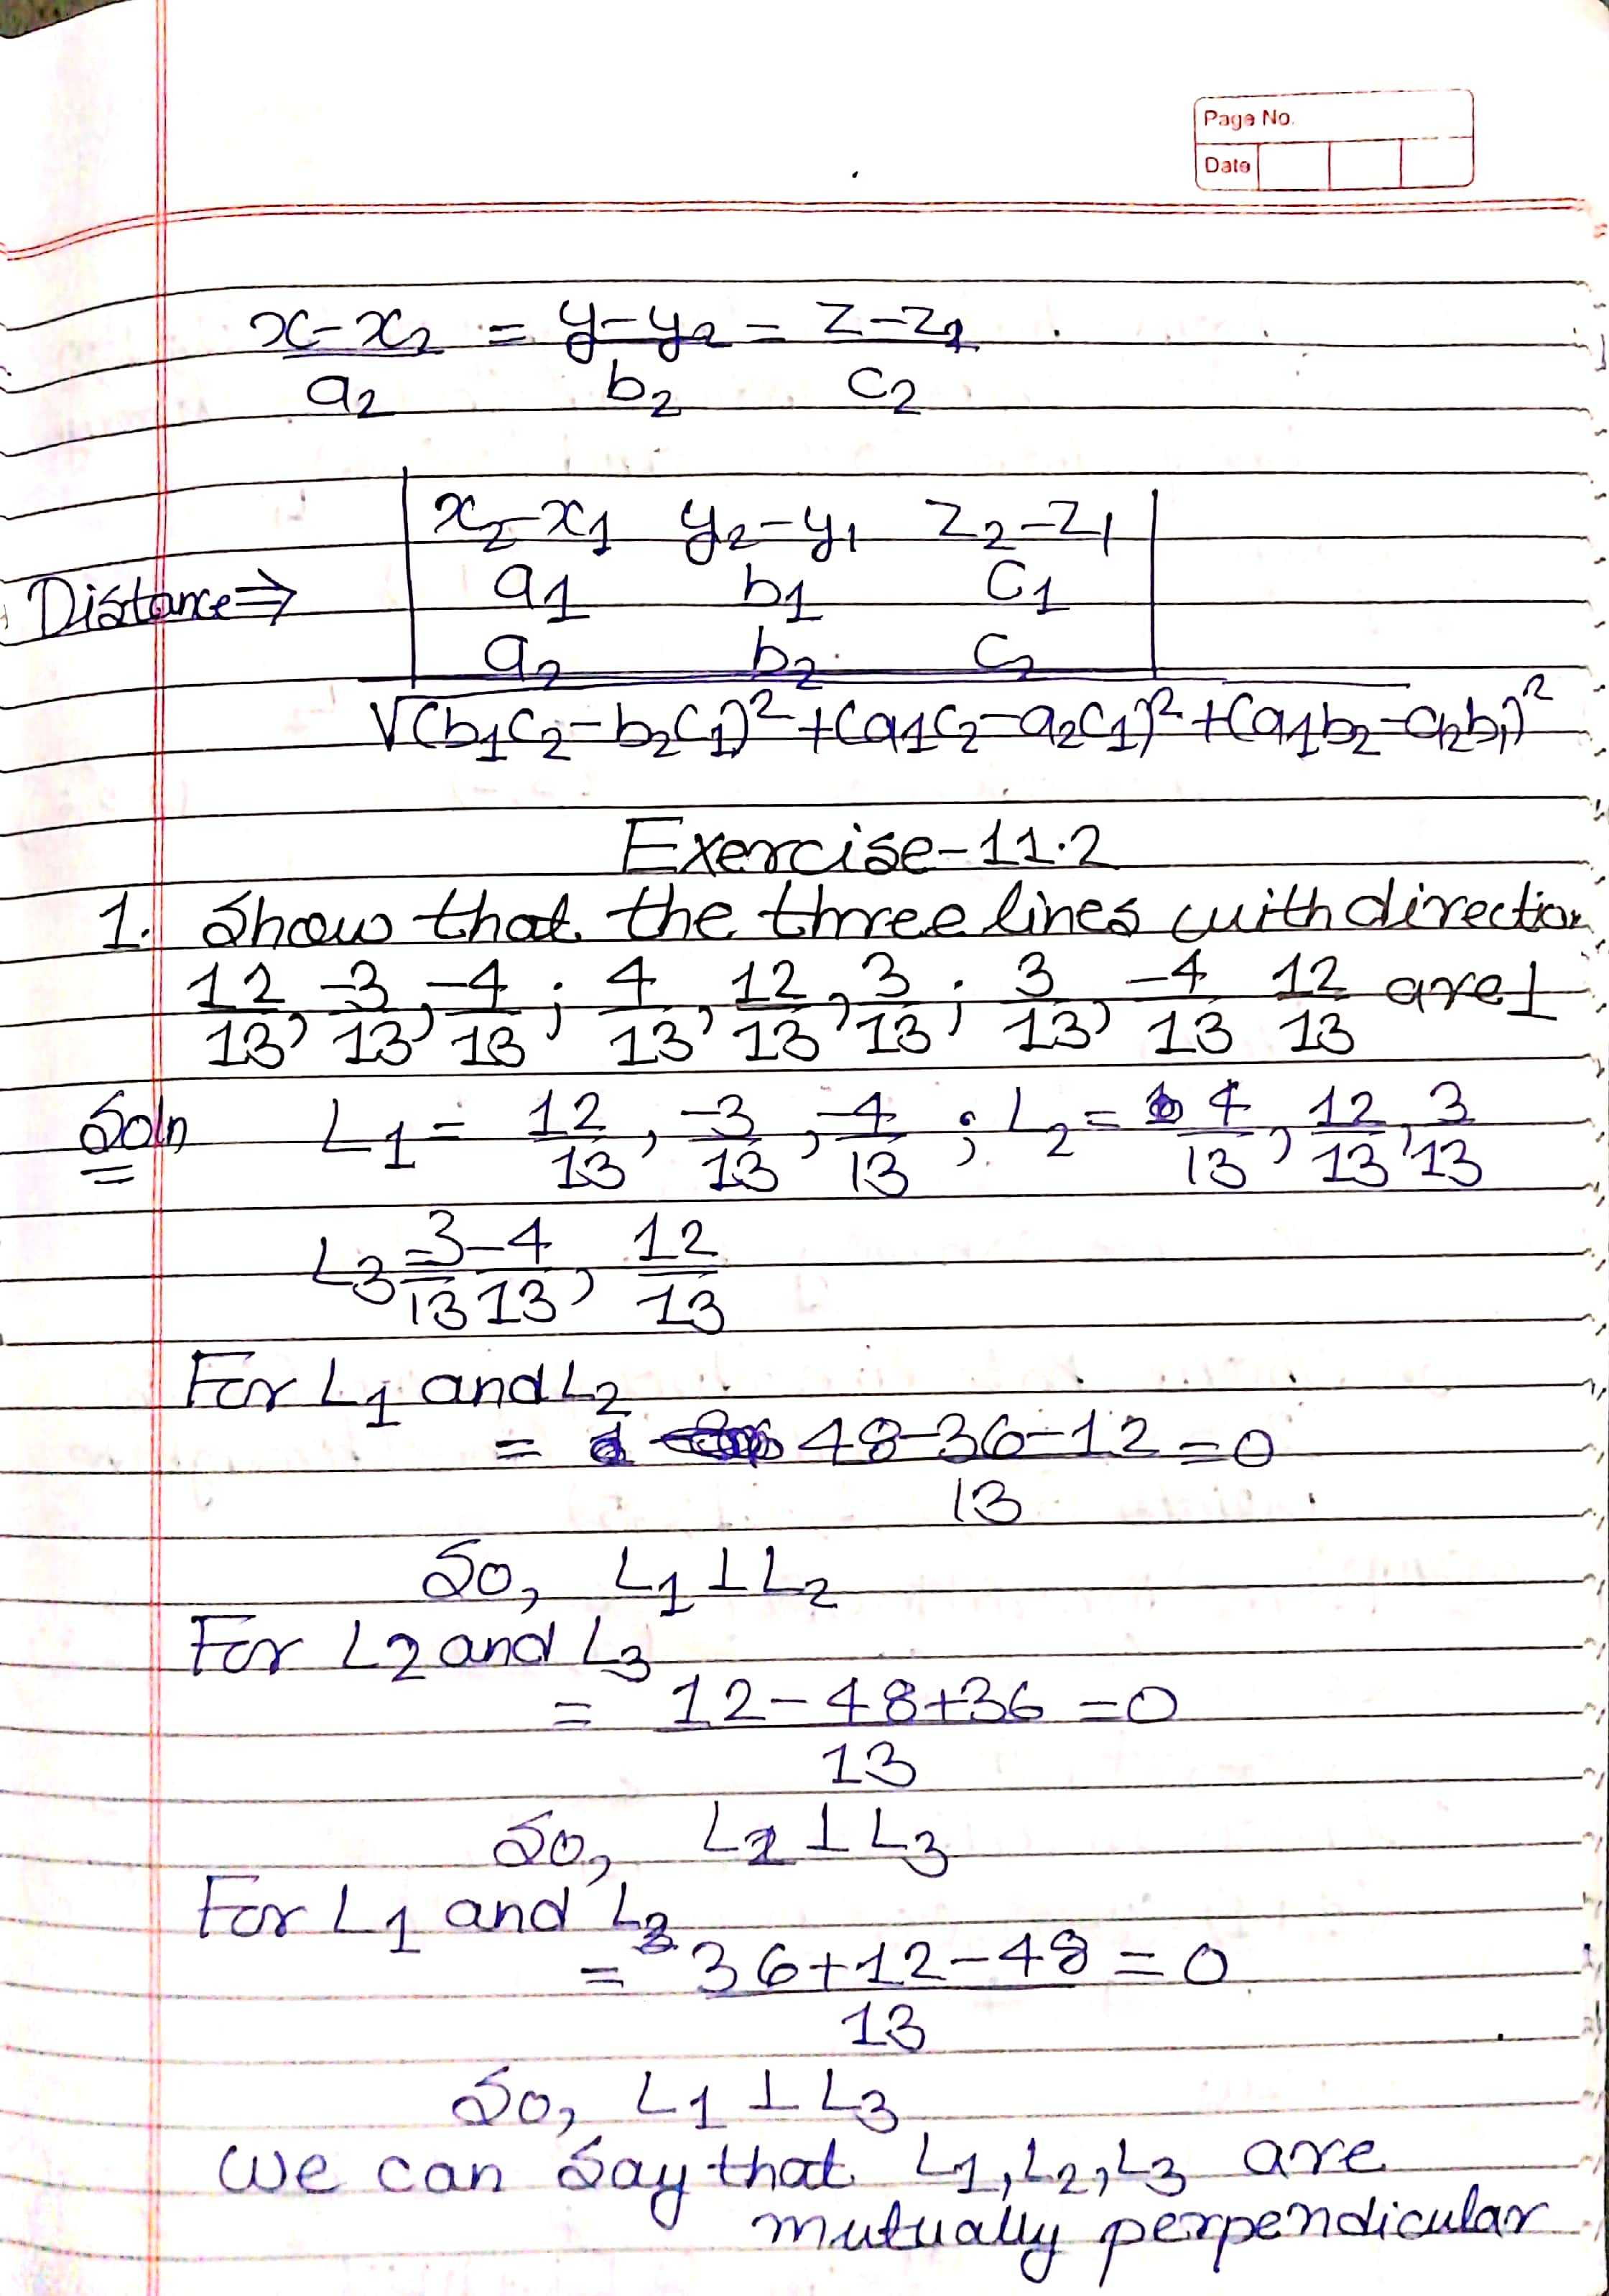 Page No.
Date
x-x₂ = y-y₂ = z-z₁
a₂ b₂ c₂
x₂-x₁ y₂-y₁ z₂-z₁
Distance⇒ a₁ b₁ c₁
a₂ b₂ c₂
√(b₁c₂-b₂c₁)²+(a₁c₂-a₂c₁)²+(a₁b₂-a₂b₁)²
Exercise-11.2
1. Show that the three lines with direction
12/13, -3/13, -4/13 ; 4/13, 12/13, 3/13 ; 3/13, -4/13 12/13 are ⊥
Soln L₁ = 12/13, -3/13, -4/13 ; L₂ = 4/13, 12/13, 3/13
L₃ = 3/13 -4/13, 12/13
For L₁ and L₂
= 48-36-12 = 0
13
So, L₁ ⊥ L₂
For L₂ and L₃
= 12-48+36 = 0
13
So, L₂ ⊥ L₃
For L₁ and L₃
= 36+12-48 = 0
13
So, L₁ ⊥ L₃
We can say that L₁, L₂, L₃ are
mutually perpendicular